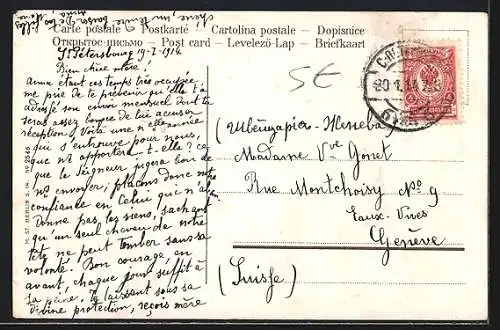 chérie, un tendre baiser de ta fille
Anna.
Carte postale — Postkarte — Cartolina postale — Dopisnice
Открытое письмо — Post card — Levelező-Lap — Briefkaart
St Pétersbourg 19-I-1914.
Bien chère mère!
Anna étant ces temps très occupée
me prie de te prévenir qu'elle t'a
adressé son envoi mensuel dont tu
seras assez bonne de lui accuser
réception. Voilà une nlle année
qui s'entrouve pour nous,
que ns apportera-t-elle? ce
que le Seigneur jugera bon de
ns envoyer; plaçons donc notre
confiance en Celui qui n'a-
bandonne pas les siens, sachant
qu'un seul cheveu de notre
tête ne peut tomber sans sa
volonté. Bon courage en
avant, chaque jour suffit à
sa peine. Te laissant sous sa
divine protection, reçois mère
M. ST. BERLIN S. 14. No 2546
5€
20 1 14
(Швейцарія-Женева)
Madame Vve Gonet
Rue Montchoisy No 9
Eaux-Vives
Genève
(Suisse)